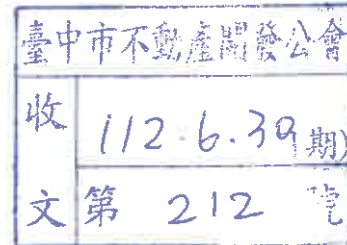 臺中市不動產開發公會
收文
112.6.30 期)
第 212 號